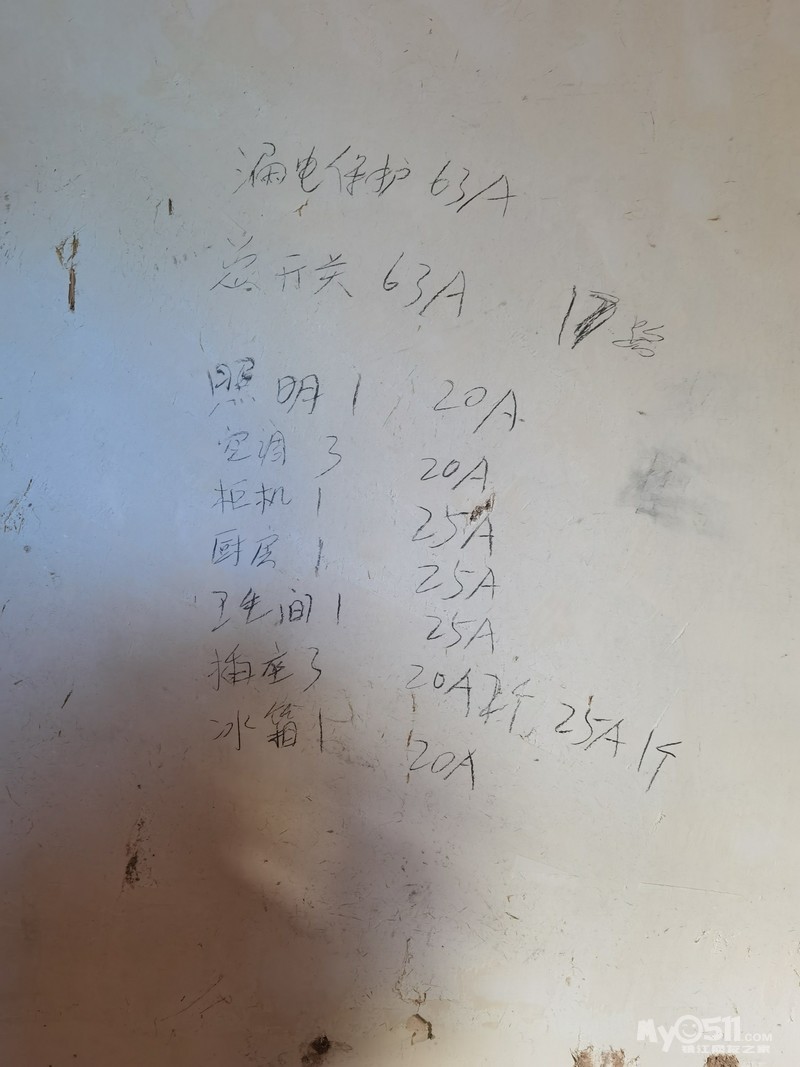 漏电保护 63A
总开关 63A
17号
照明 1 20A
空调 3 20A
柜机 1 25A
厨房 1 25A
卫生间 1 25A
插座 3 20A 2个 25A 1个
冰箱 1 20A
My0511.COM
镇江网友之家